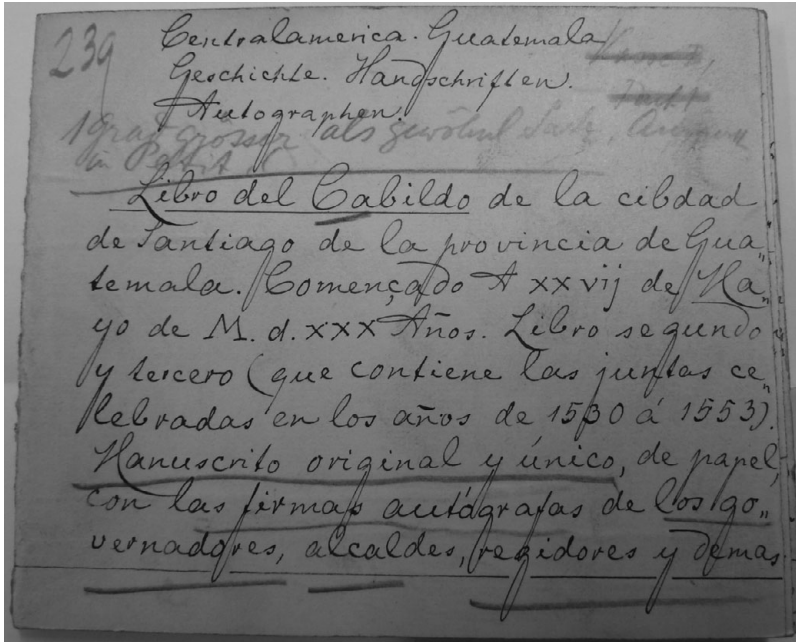 239
Centralamerica. Guatemala
Geschichte. Handschriften.
Autographen.
1 grad grösser als gewöhnl
in Petit
Libro del Cabildo de la cibdad
de Santiago de la provincia de Gua„
temala. Começado A xxvij de Ma„
yo de M. d. xxx Años. Libro segundo
y tercero (que contiene las juntas ce„
lebradas en los años de 1530 á 1553).
Manuscrito original y único, de papel,
con las firmas autógrafas de los go„
vernadores, alcaldes, regidores y demas